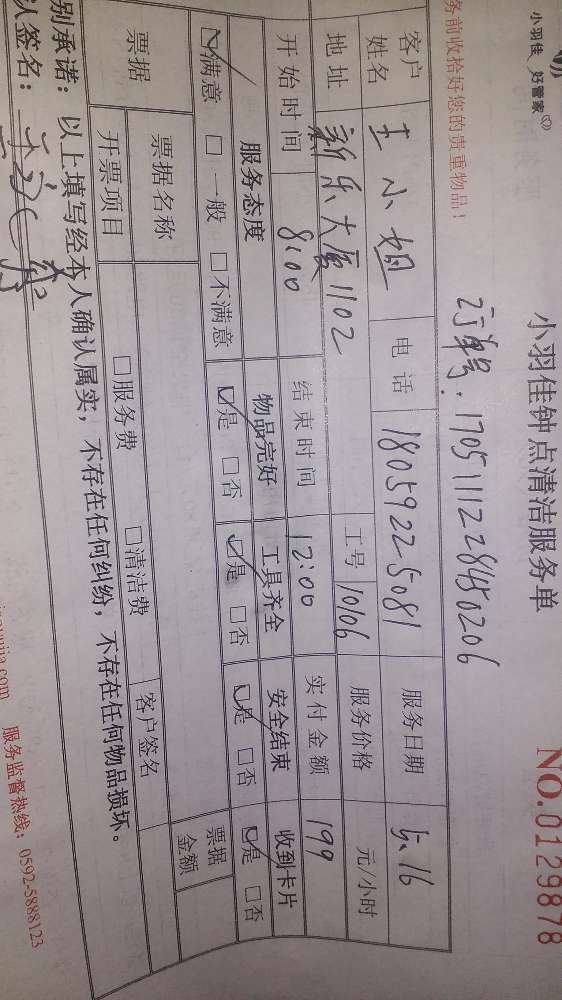 小羽佳 好管家
小羽佳钟点清洁服务单
NO.0129878
务前收拾好您的贵重物品!
订单号:1705111228480206
客户姓名 王小姐 电话 18059225081 服务日期 5.16
地址 新乐大厦1102 工号 10106 服务价格 元/小时
开始时间 8:00 结束时间 12:00 实付金额 199
服务态度 物品完好 工具齐全 安全结束 收到卡片
☑满意 □一般 □不满意 ☑是 □否 ☑是 □否 ☑是 □否 ☑是 □否
票据 票据名称 票据金额
开票项目 □服务费 □清洁费 客户签名
别承诺:以上填写经本人确认属实,不存在任何纠纷,不存在任何物品损坏。
认签名:
服务监督热线:0592-5888123